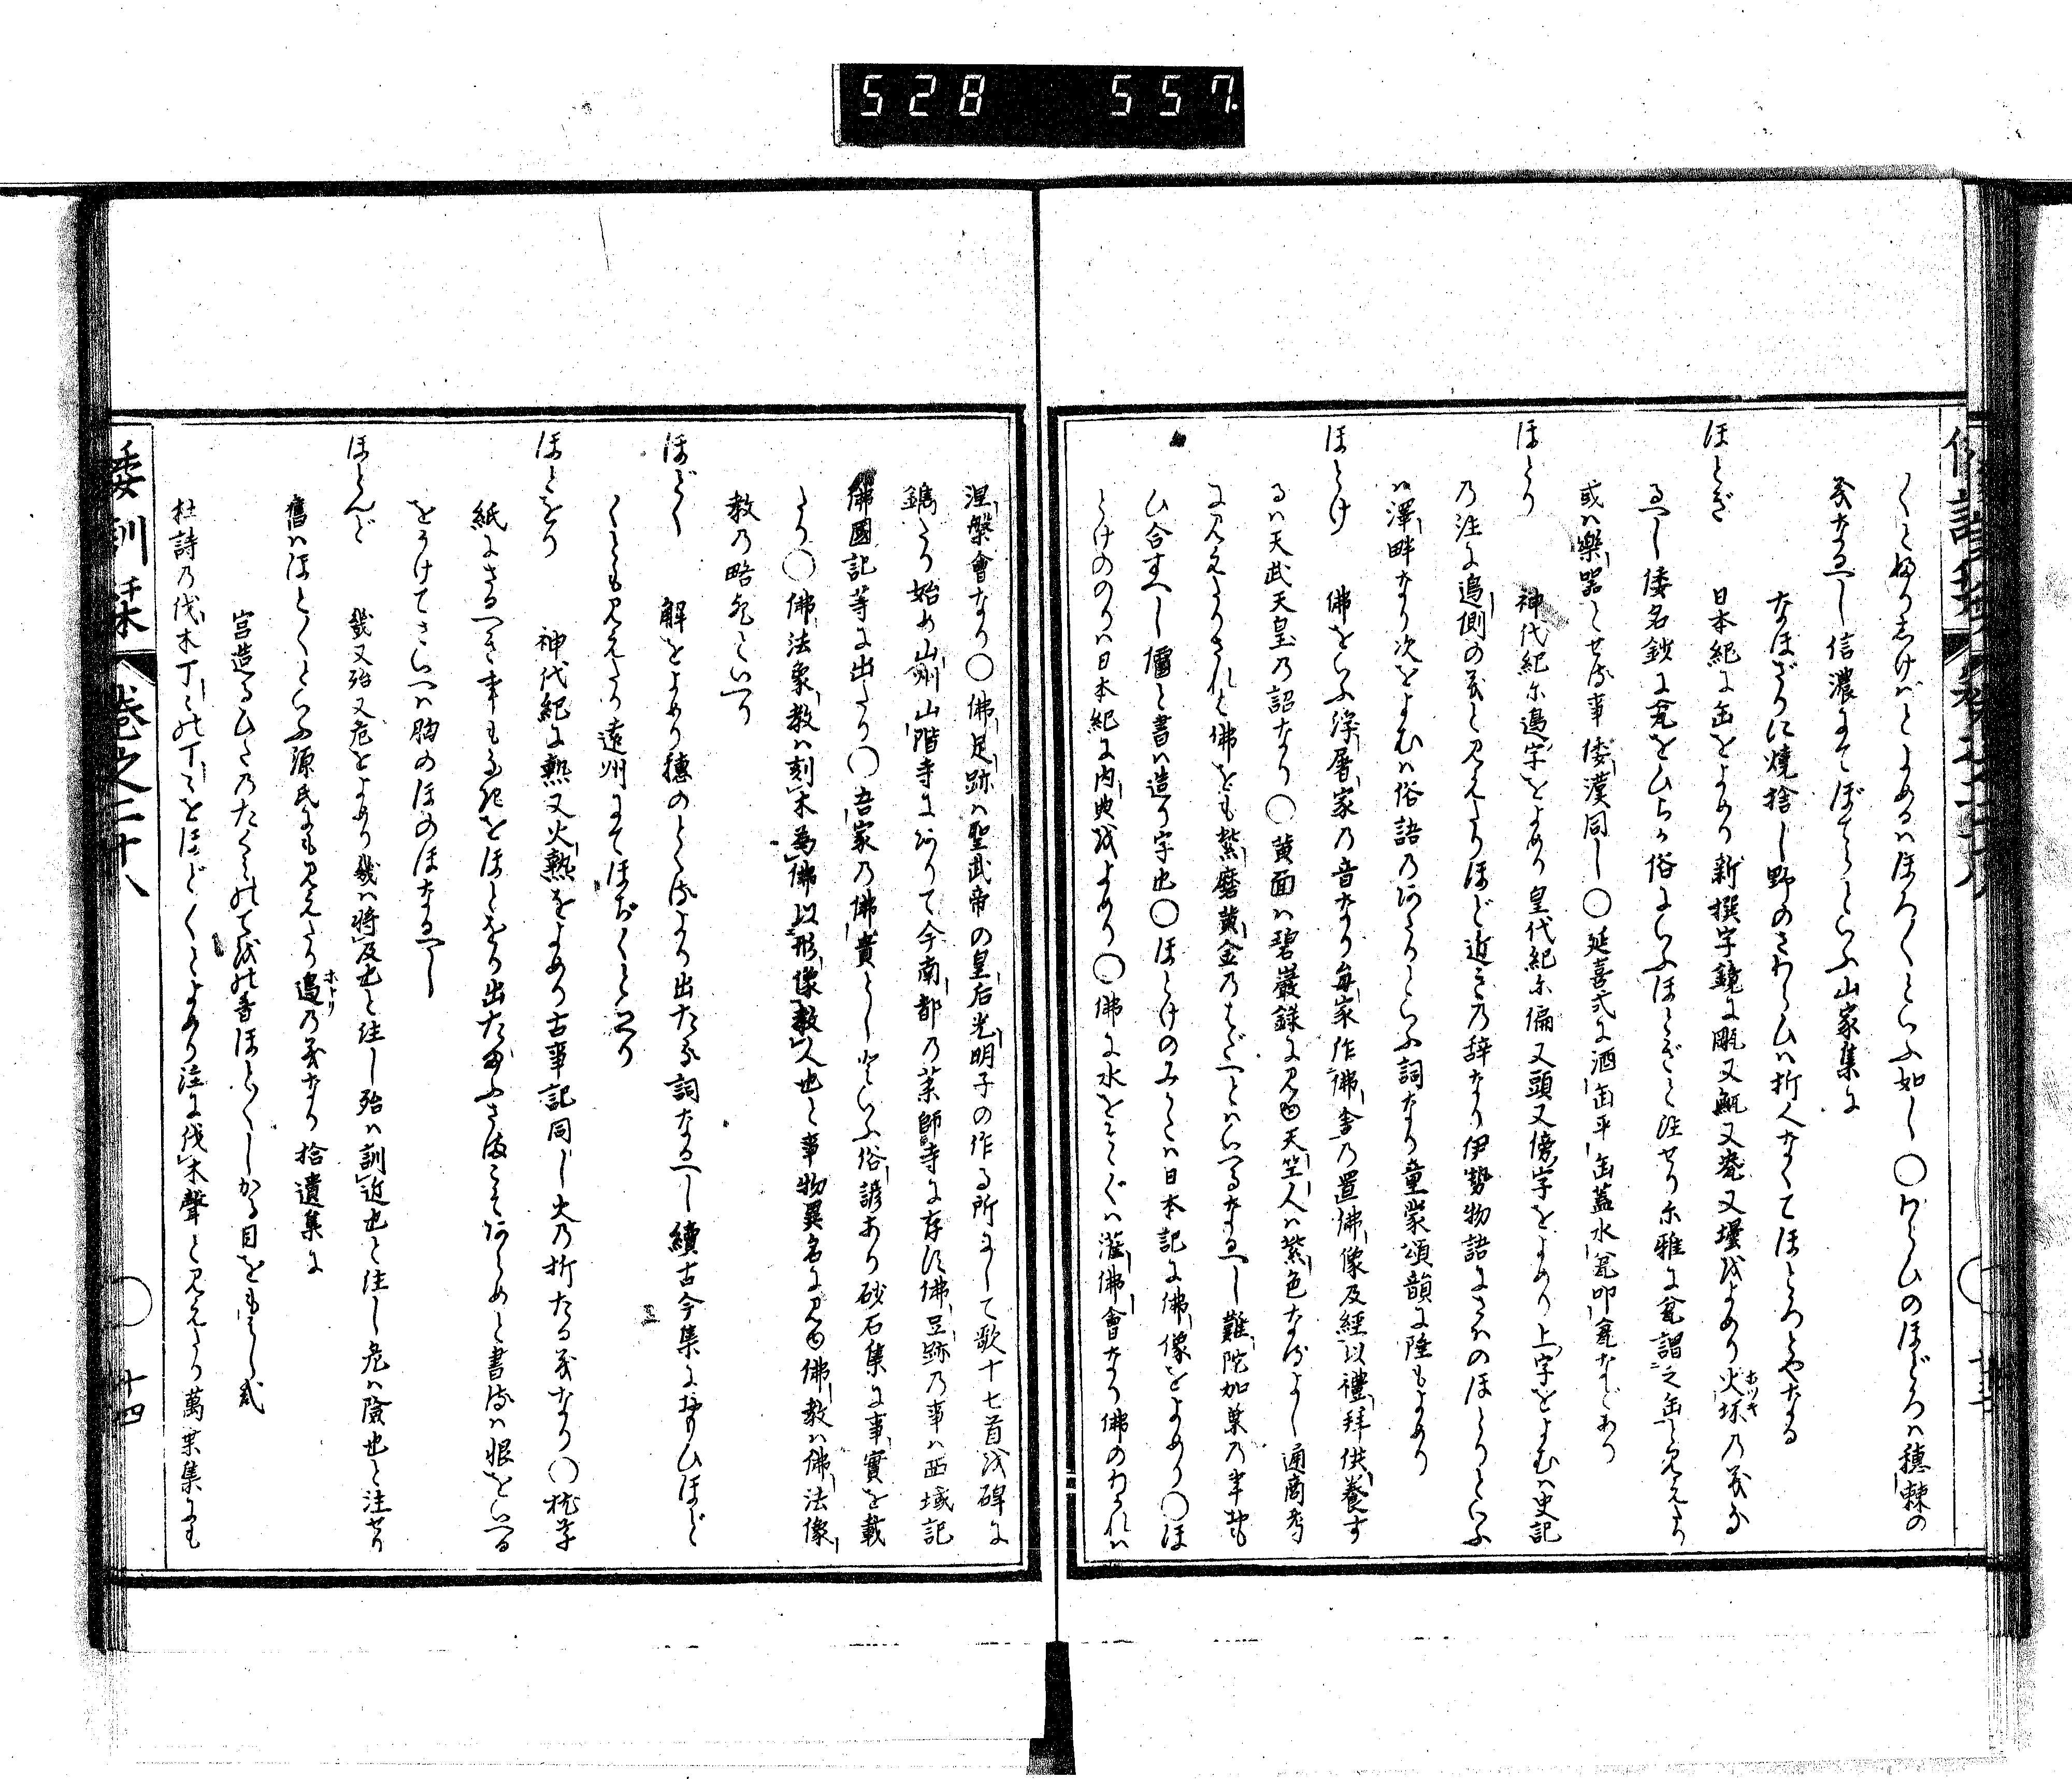 528 557
くと物うちしけばとよめるはほろ〱といふ如し〇わらひのほどろハ穗棘の
義なるへし信濃にてぼとろといふ山家集に
なほざりに燒捨し野のさわらひハ折人なくてほとろとやなる
ほとぎ 日本紀に缶をよめり新撰字鏡に瓺又瓱又瓫又壜をよめり火坏の義なる
るへし倭名鈔に瓫をひらか俗にいふほとぎと注せり尓雅に瓫謂之缶と見えたり
或ハ樂器とせる事倭漢同し〇延喜式に酒缶平缶蓋水瓫叩瓫なとあり
ほとり 神代紀尓邊字をよめり皇代紀尓偏又頭又傍字をよめり上字をよむハ史記
乃注に邊側の義と見えたりほど近き乃辞なり伊勢物語にさハのほとりといふ
ハ澤畔なり次をよむハ俗語乃あたりといふ詞なり童蒙頌韻に陲もよめり
ほとけ 佛をいふ浮屠家乃音なり毎家作佛舎乃置佛像及經以禮拜供養す
るハ天武天皇乃詔なり〇黄面ハ碧巖録に見ゆ天竺人ハ紫色なるよし通商考
に見えたりされと佛をも紫磨黄金乃はだへとハいへるなるへし難陀加葉乃事も
ひ合すへし儒と書ハ造り字也〇ほとけのみかとハ日本記に佛像をよめり〇ほ
とけののりハ日本紀に内典をよめり〇佛に水をそゝぐハ灌佛會なり佛のわかれハ
涅槃會なり〇佛足跡ハ聖武帝の皇后光明子の作る所にして歌十七首を碑に
鐫たり始め山州山階寺にありて今南都乃藥師寺に存す佛足跡乃事ハ西域記
佛國記等に出たり〇吾家乃佛貴としといふ俗諺あり砂石集に事實を載
たり〇佛法象教ハ刻木爲佛以形像教人也と事物異名に見ゆ佛教ハ佛法像
教乃略也といへり
ほど〱 解をよめり穗のとくるより出たる詞なるへし續古今集におもひほど
くとも見えたり遠州にてほぢくといへり
ほとをり 神代紀に熱又火熱をよめり古事記同し火乃折たる義なり〇枕草
紙にさるへき事もなきをほとをり出たまふさまこそあらめと書るハ恨をいへる
をうけてさいへハ胸のほのほなるへし
ほとんど 幾又殆又危をよめり幾ハ將及也と注し殆ハ訓近也と注し危ハ險也と注せり
舊ハほと〱といふ源氏にも見えたり邊乃義なり拾遺集に
宮造るひたのたくみのてをの音ほと〱しかる目をも見し哉
杜詩乃伐木丁ミ乃丁ミをほど〱とよめり注に伐木聲と見えたり萬葉集にも
倭訓栞 卷之二十八 十四